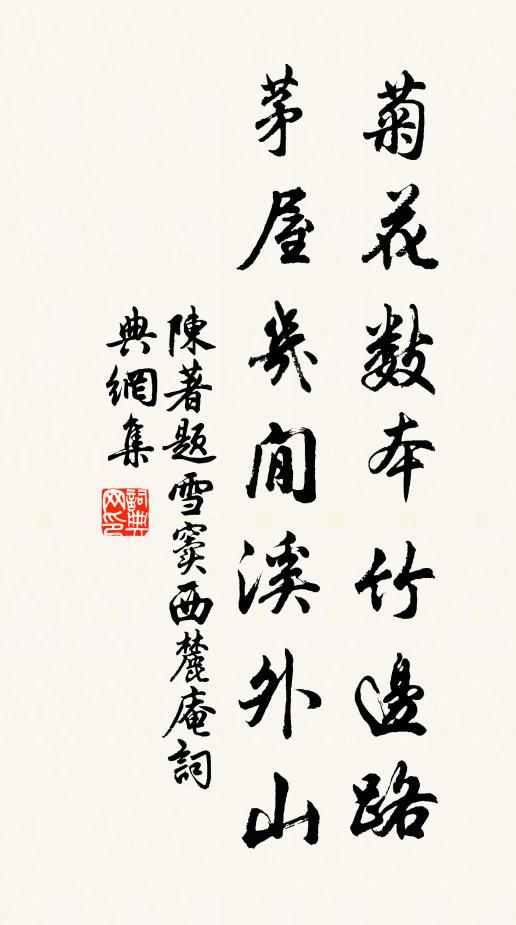 菊花数本竹邊路
茅屋幾間溪外山
陳著題雪竇西麓庵詞
典網集
詞典网印